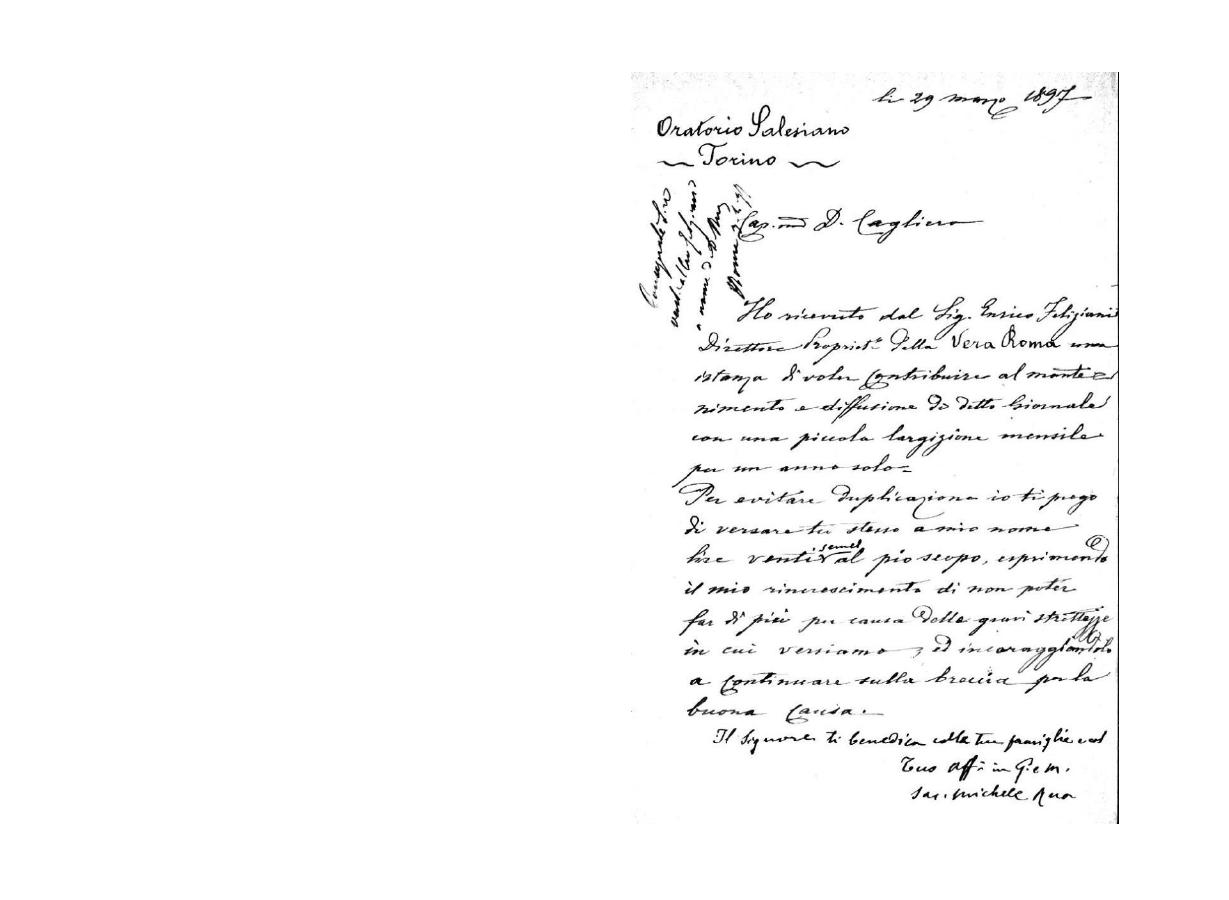 li 29 marzo 1897
Oratorio Salesiano
Torino
Consegnate Lire
venti
a nome
Roma
Car.mo D. Cagliero
Ho ricevuto dal Sig. Enrico Filiziani
Direttore Propriet.º della Vera Roma una
istanza di voler contribuire al mante=
nimento e diffusione di detto Giornale
con una piccola largizione mensile
per un anno solo=
Per evitare duplicazione io ti prego
di versare tu stesso a mio nome
semel
lire venti al pio scopo, esprimendo
il mio rincrescimento di non poter
far di più per causa delle gravi strettezze
in cui versiamo, ed incoraggiandolo
a continuare sulla breccia per la
buona causa.
Il Signore ti benedica colla tua famiglia ed
Tuo aff. in G. e M.
Sac. Michele Rua